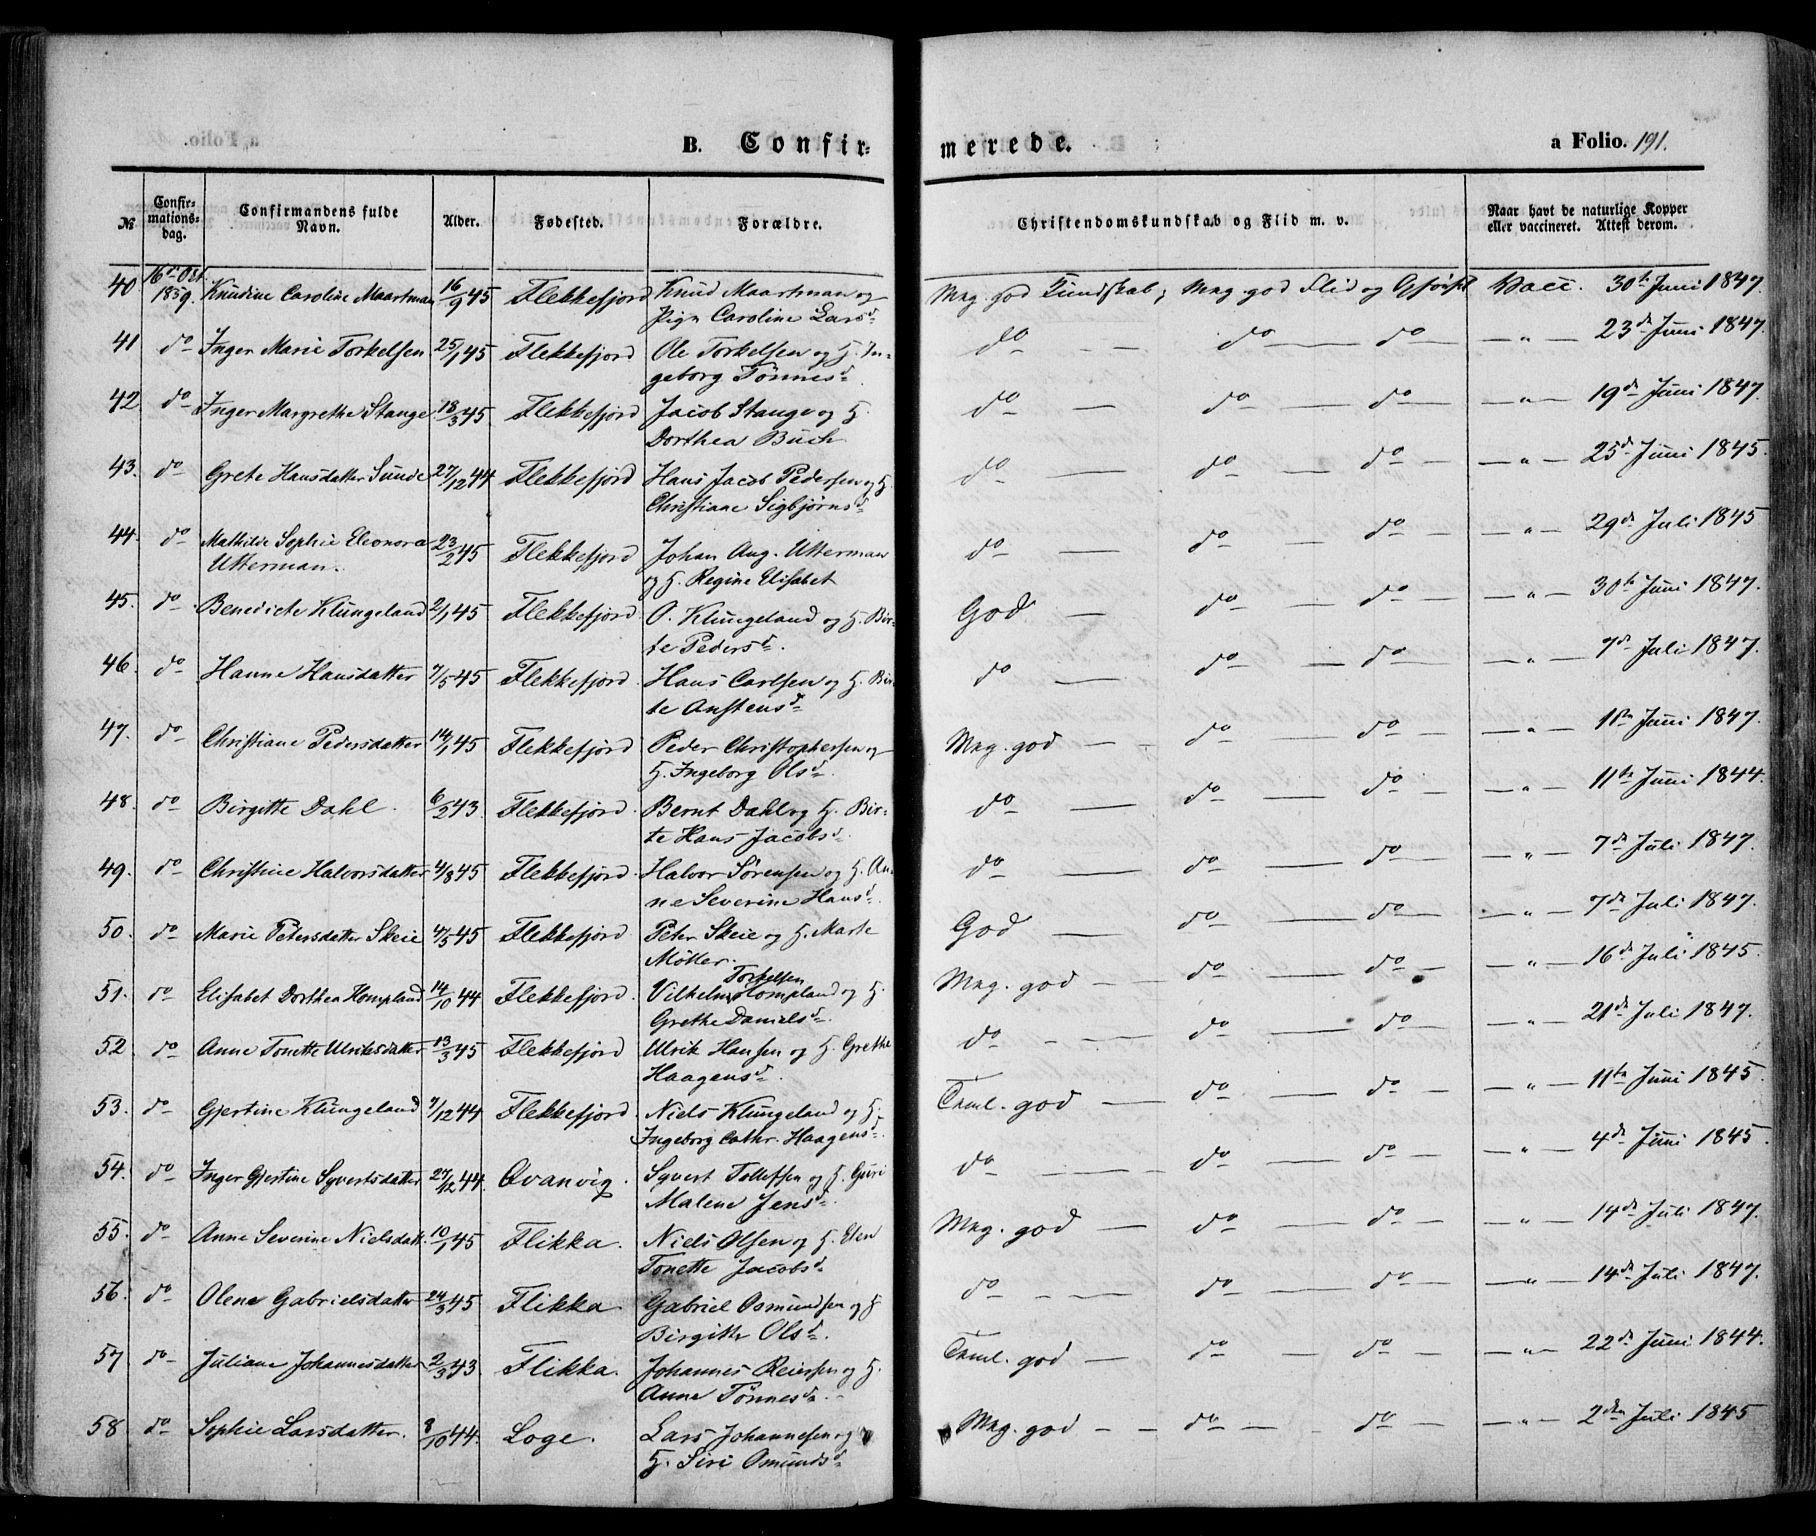 B. Confir-
merede.
a Folio. 191.
№
Confir-
mations-
dag.
Confirmandens fulde
Navn.
Alder.
Fødested.
Forældre.
Christendomskundskab og Flid m. v.
Naar havt de naturlige Kopper
eller vaccineret. Attest derom.
40. 16de Oct. 1859. Knudine Caroline Maartman 16/9 45 Flekkefjord Knud Maartman og Meg. god Kundskab, Meg. god Flid og Vacc. 30te Juni 1847.
Pige Caroline Larsd.
41 do Inger Marie Torkelsen 25/1 45 Flekkefjord Ole Torkelsen og H. In- do — do — do — " — 23de Juni 1847.
geborg Tønnesd.
42. do Inger Margrethe Stange 18/3 45 Flekkefjord Jacob Stange og H. do — do — do — " — 19de Juni 1847.
Dorthea Buch
43. do Grete Hansdatter Sunde 27/12 44 Flekkefjord Hans Jacob Pedersen og H. do — do — do — " — 25de Juni 1845.
Christiane Sigbjørnsd.
44. do Mathilde Sophie Eleonora 23/2 45 Flekkefjord Johan Aug. Utterman do — do — do — " — 29de Juli 1845
Utterman. og H. Regine Elisabet
45. do Benedicte Klungeland 2/1 45 Flekkefjord O. Klungeland og H. Bir- God — do — do — " — 30te Juni 1847.
te Pedersd.
46. do Hanne Hansdatter 7/5 45 Flekkefjord. Hans Carlsen og H. Bir- do — do — do — " — 7de Juli 1847.
te Anstensd.
47. do Christiane Pedersdatter 14/1 45 Flekkefjord Peder Christophersen og Meg. god — do — do — " — 11te Juni 1847.
H. Ingeborg Olsd.
48. do Birgitte Dahl. 6/2 43. Flekkefjord. Bernt Dahl og H. Bir- do — do — do — " — 11te Juni 1844.
te Hans Jacobsd.
49. do Christine Halvorsdatter 4/8 45 Flekkefjord. Halvor Sørensen og H. An- do — do — do — " — 7de Juli 1847.
ne Severine Hansd.
50. do Marie Petersdatter Skeie 4/5 45 Flekkefjord Peter Skeie og H. Marte God — do — do — " — 7de Juli 1847.
Møller.
51. do Elisabet Dorthea Hompland 14/10 44 Flekkefjord. Vilhelm Torkelsen Hompland og H. Meg. god — do — do — " — 16de Juli 1845.
Grethe Danielsd.
52 do Anne Tonette Ulriksdatter 13/3 45 Flekkefjord Ulrik Hansen og H. Grethe do — do — do — " — 21de Juli 1847.
Haagensd.
53. do Gjertine Klungeland 7/12 44 Flekkefjord Niels Klungeland og H. Taml. god — do — do — " — 11te Juni 1845.
Ingeborg Cathr. Haagensd.
54. do Inger Gjertine Syvertsdatter 27/12 44. Qvanvig. Syvert Tollefsen og H. Guri do — do — do — " — 4de Juni 1845.
Malene Jensd.
55. do Anne Severine Nielsdatt. 10/1 45 Flikka. Niels Olsen og H. Elen Meg. god — do — do — " — 14de Juli 1847.
Tonette Jacobsd.
56. do Olene Gabrielsdatter 24/3 45 Flikka Gabriel Osmundsen og H. do — do — do — " — 14de Juli 1847.
Birgitte Olsd.
57. do Juliane Johannesdatter 2/3 43. Flikka. Johannes Reiersen og H. Taml. god — do — do — " — 22de Juni 1844.
Anne Tønnesd.
58. do Sophie Larsdatter. 8/10 44. Loge. Lars Johannesen og Meg. god — do — do — " — 2den Juli 1845
H. Siri Osmundsd.